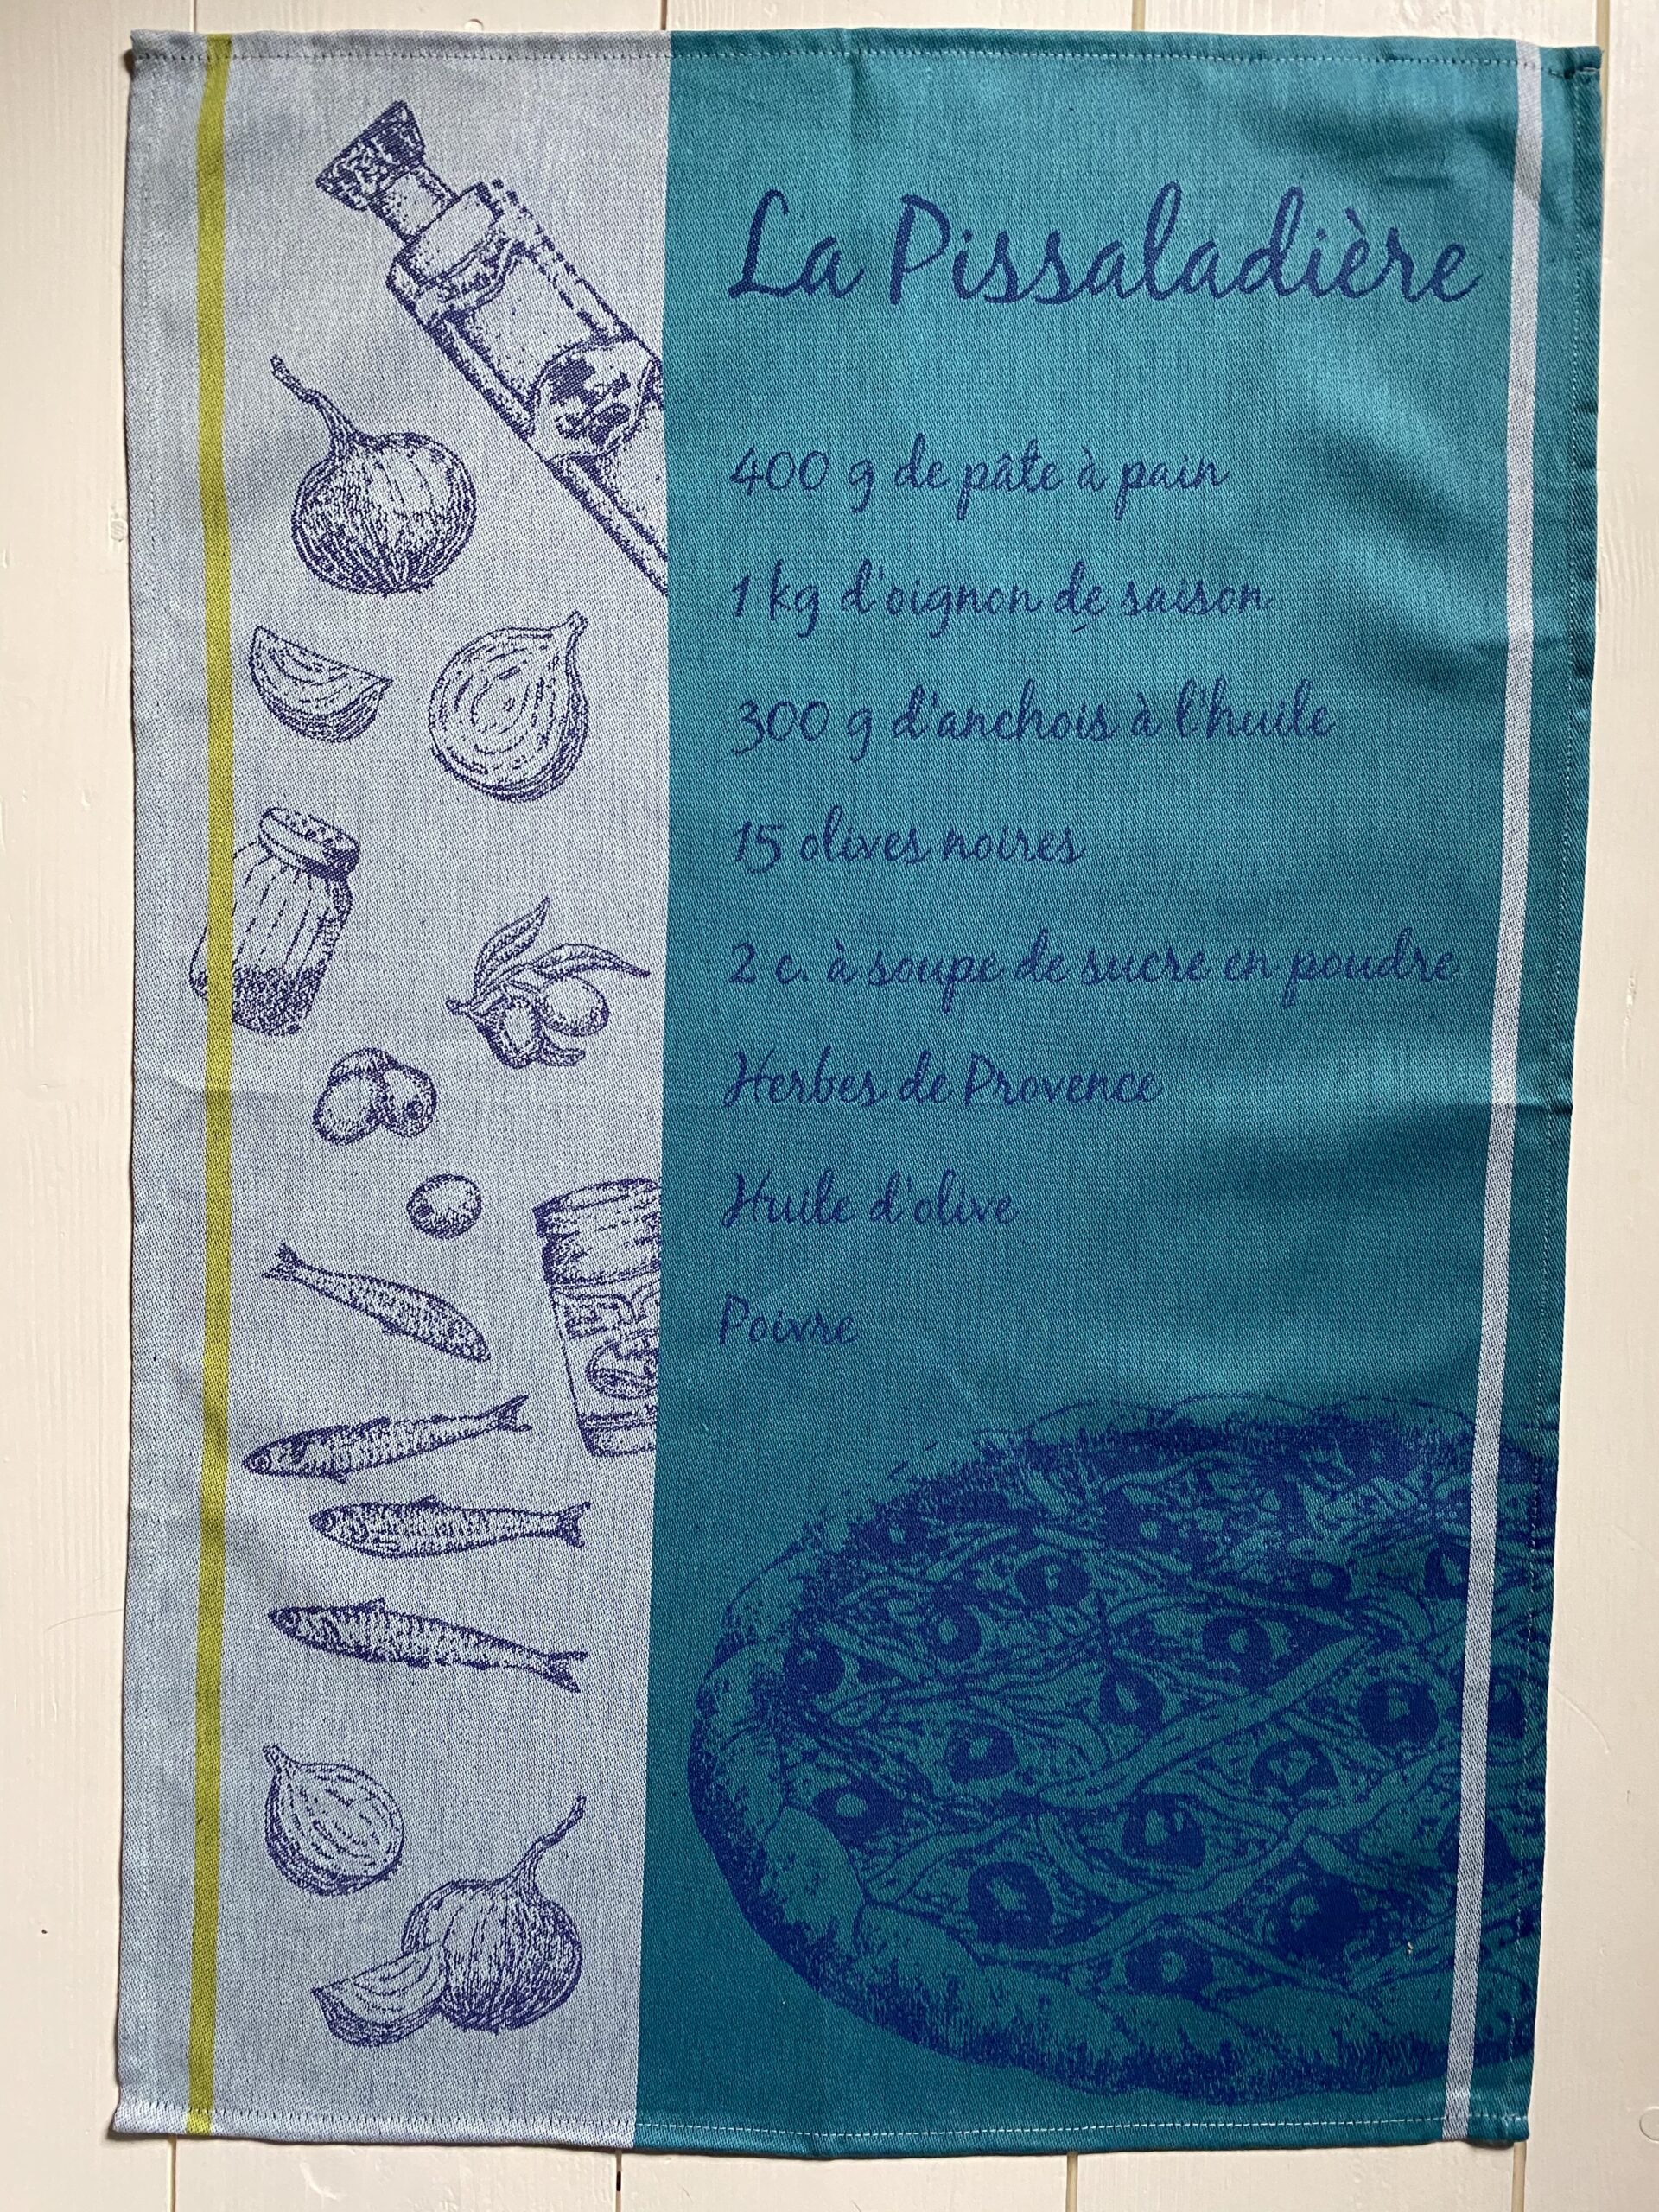 La Pissaladière
400 g de pâte à pain
1 kg d'oignon de saison
300 g d'anchois à l'huile
15 olives noires
2 c. à soupe de sucre en poudre
Herbes de Provence
Huile d'olive
Poivre